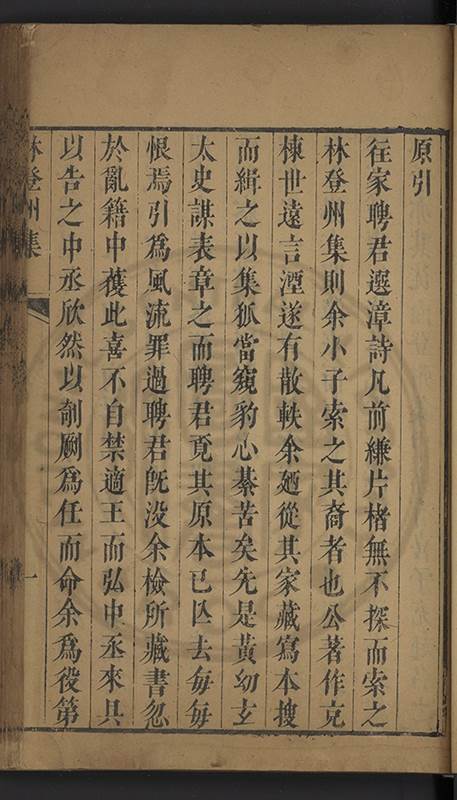 原引
往家聘君選漳詩凡前縑片楮無不探而索之
林登州集則余小子索之其裔者也公著作克
棟世遠言湮遂有散軼余廼從其家藏寫本搜
而緝之以集狐當窺豹心綦苦矣先是黃幼玄
太史謀表章之而聘君覓其原本已亾去每每
恨焉引為風流罪過聘君旣没余檢所藏書忽
於亂籍中獲此喜不自禁適王而弘中丞來具
以告之中丞欣然以剞劂為任而命余為役第
林登州集
一